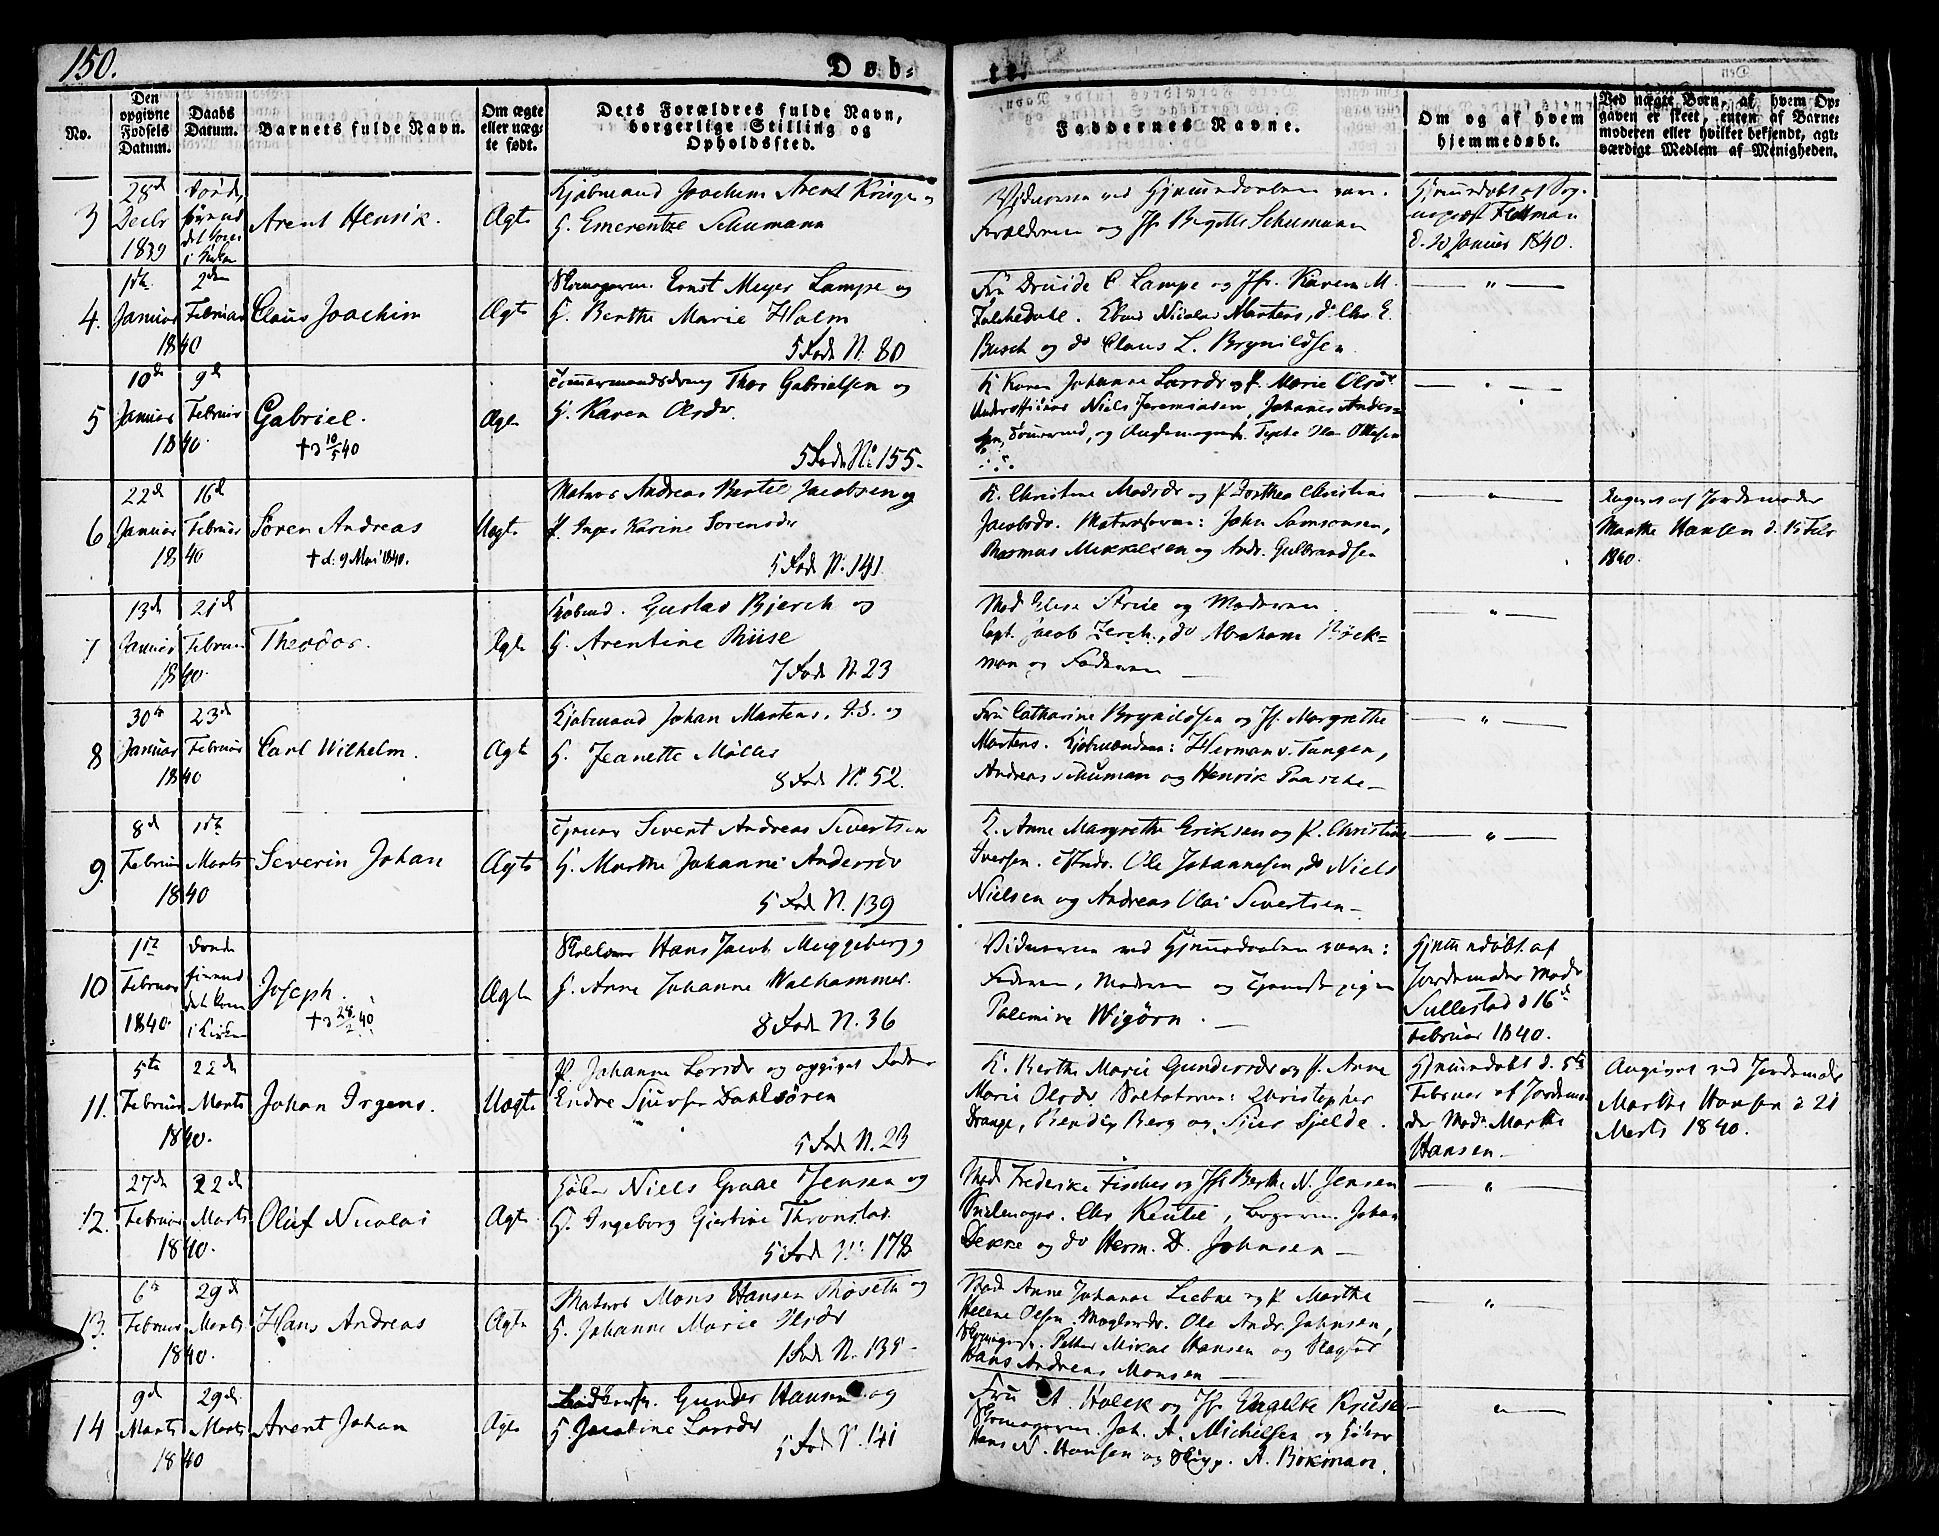 150.
Døb-
te.
No.
Den opgivne Fødsels Datum.
Daabs Datum.
Barnets fulde Navn.
Om ægte eller uægte født.
Dets Forældres fulde Navn, borgerlige Stilling og Opholdssted.
Faddernes Navne.
Om og af hvem hjemmedøbt.
Ved uægte Børn, af hvem Opgaven er skeet, enten af Barnemoderen eller hvilket bekjendt, agtværdigt Medlem af Menigheden.
3
28d Decbr 1839
Arent Henrik.
Ægte
Kjøbmand Joachim Arent Krüger og
H. Emerentze Schumann
Vidnerne ved Hjemmedaaben vare
Forældrene og Jfr Birgitte Schumann
Hjemmedøbt af Sog-
nepræst Flottman
d. 20 Januar 1840.
4.
1ste Januar 1840
2den Februar
Claus Joachim
Ægte
Skomagerm. Ernst Meyer Lampe og
H. Berthe Marie Holm
5 Fode N. 80
Fru Druide C Lampe og Jfr. Karen M.
Falchedahl. Nicolai Martens,
Busch og do Claus L. Brynildsen
5
10de Januar 1840.
9d Februar
Gabriel.
† d 10/5 40
Ægte
Tømmermandsdreng Thor Gabrielsen og
H. Karen Olsdr.
5 Fode No 155.
K Karen Johanne Larsdr og P. Marie Olsdr
Underofficier Niels Jeremiasen, Johannes Ander-
sen,
6
22d Januar 1840
16d Februar
Søren Andreas
† d: 9 Mai 1840.
Uægte
Matros Andreas Bertel Jacobsen og
P. Inger Karine Sørensdr
5 Fode N. 141
K. Christine Madsdr og P Dorthea Christine
Jacobsdr. Matroserne: John Samsonsen,
Rasmus Mikkelsen og Andr. Gulbrandsen
Angivet af Jordemoder
Marthe Hansen d. 15 Febr
1840.
7
13d Januar 1840
21d Februar
Theodor.
Ægte
Kjøbmd. Gustav Bjerck og
H. Arentine Buse
7 Fode N. 23
Mad Elise Arue og Moderen
Capt. Jacob Lerch, do Abraham Bøck-
man og Faderen
8
30te Januar 1840
23d Februar
Carl Wilhelm.
Ægte
Kjøbmand Johan Martens, J.S. og
H. Jeanette Møller
8 Fode No 52.
Fru Catharine Brynildsen og Jf. Margrethe
Martens. Kjøbmændene: Herman v. Tangen,
Andreas Schuman og Henrik Paasche
9.
8d Februar 1840
1ste Marts
Severin Johan
Ægte
Sivert Andreas Sivertsen
H. Marthe Johanne Andersdr
5 Fode N. 139
K. Anne Margrethe Eriksen og P. Christine
Iversen. Ole Johannesen, do Niels
Nielsen og Andreas Olai Sivertsen
10
1ste Februar 1840.
Joseph.
† d 28/2 40
Ægte
Hans Jacob Meggeberg og
H. Anne Johanne Walhammer.
8 Fode N. 36
Vidnerne ved Hjemmedaaben vare:
Faderen, Moderen og Tjenestepigen
Palemine Wigørn.
Hjemmedøbt af
Jordemoder Mad.
Sullestad d 16d
Februar 1840.
11.
5te Februar 1840.
22d Marts
Johan Irgens.
Uægte
P. Johanne Larsdr og opgiven Fader
Endre Sjursen Dahlsøren
5 Fode N. 23
K. Berthe Marie Gundersdr og P. Anne
Marie Olsdr. Soldaterne: Christopher
Drange, Bendix Berg og Siur Sjelde.
Hjemmedøbt d. 5te
Februar af Jordemo-
der Mad. Marthe
Hansen.
Angivet ved Jordemoder
Marthe Hansen d 21
Marts 1840.
12.
27de Februar 1840.
22d Marts
Oluf Nicolai
Ægte
Niels Graae Jensen og
H. Ingeborg Gjertine Thronstad
5 Fode N: 178
Mad Frederike Fischer og Jfr Berthe N. Jensen
Johan
Dekke og do Herm. D. Johnsen
13.
6te Februar 1840.
29d Marts
Hans Andreas
Ægte
Matros Mons Hansen Røseth og
H. Johanne Marie Olsdr
1 Fode N. 135
Mad Anne Johanne Liebne og P Marthe
Helene Olsen. Ole Andr. Johnsen,
Petter Mikal Hansen og
Hans Andreas Monsen
14
9d Marts 1840
29de Marts
Arent Johan
Ægte
Gunder Hansen og
H. Jacobine Larsdr
5 Fode N. 141
Fru A. Holck og Jf Engelke Kruse
Skomagerm. Joh. A. Michelsen og
Hans N. Hansen og A. Bøkman.